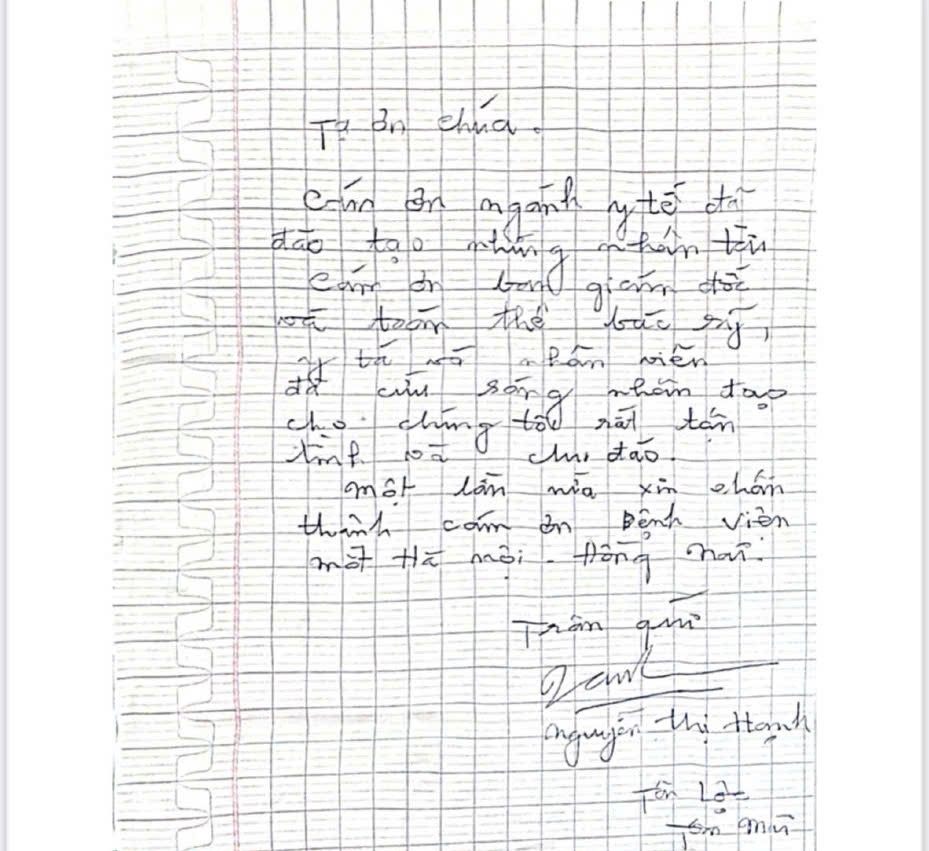 Tạ ơn chúa.
Cám ơn ngành y tế đã
đào tạo những nhân tài
Cám ơn ban giám đốc
và toàn thể bác sỹ,
y tá và nhân viên
đã cứu sống nhân đạo
cho chúng tôi rất tận
tình và chu đáo.
Một lần nữa xin chân
thành cám ơn Bệnh viện
mắt Hà nội - Đồng Nai.
Trân quí
Hạnh
Nguyễn Thị Hạnh
Tân Lộ
Tân Mai